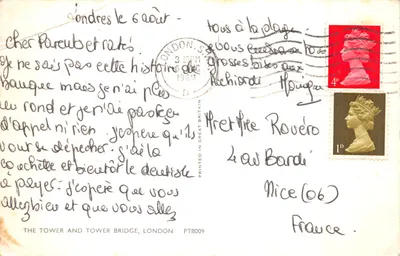 Londres le 6 août -
cher Parents et ratés
Je ne sais pas cette histoire de
banque mais je n'ai plus
un rond et je n'ai pas reçu
d'appel ni rien. J'espère qu'ils
vont se dépêcher. J'ai la
couchette et bientôt le dentiste
à payer. J'espère que vous
allez bien et que vous allez
tous à la plage
vous
grosses bises aux
Richiardi
LONDON, S.
Mr et Mme Rovéro
4 av Bardi
Nice (06)
France.
4D
1D
PRINTED IN GREAT BRITAIN
THE TOWER AND TOWER BRIDGE, LONDON PT8009